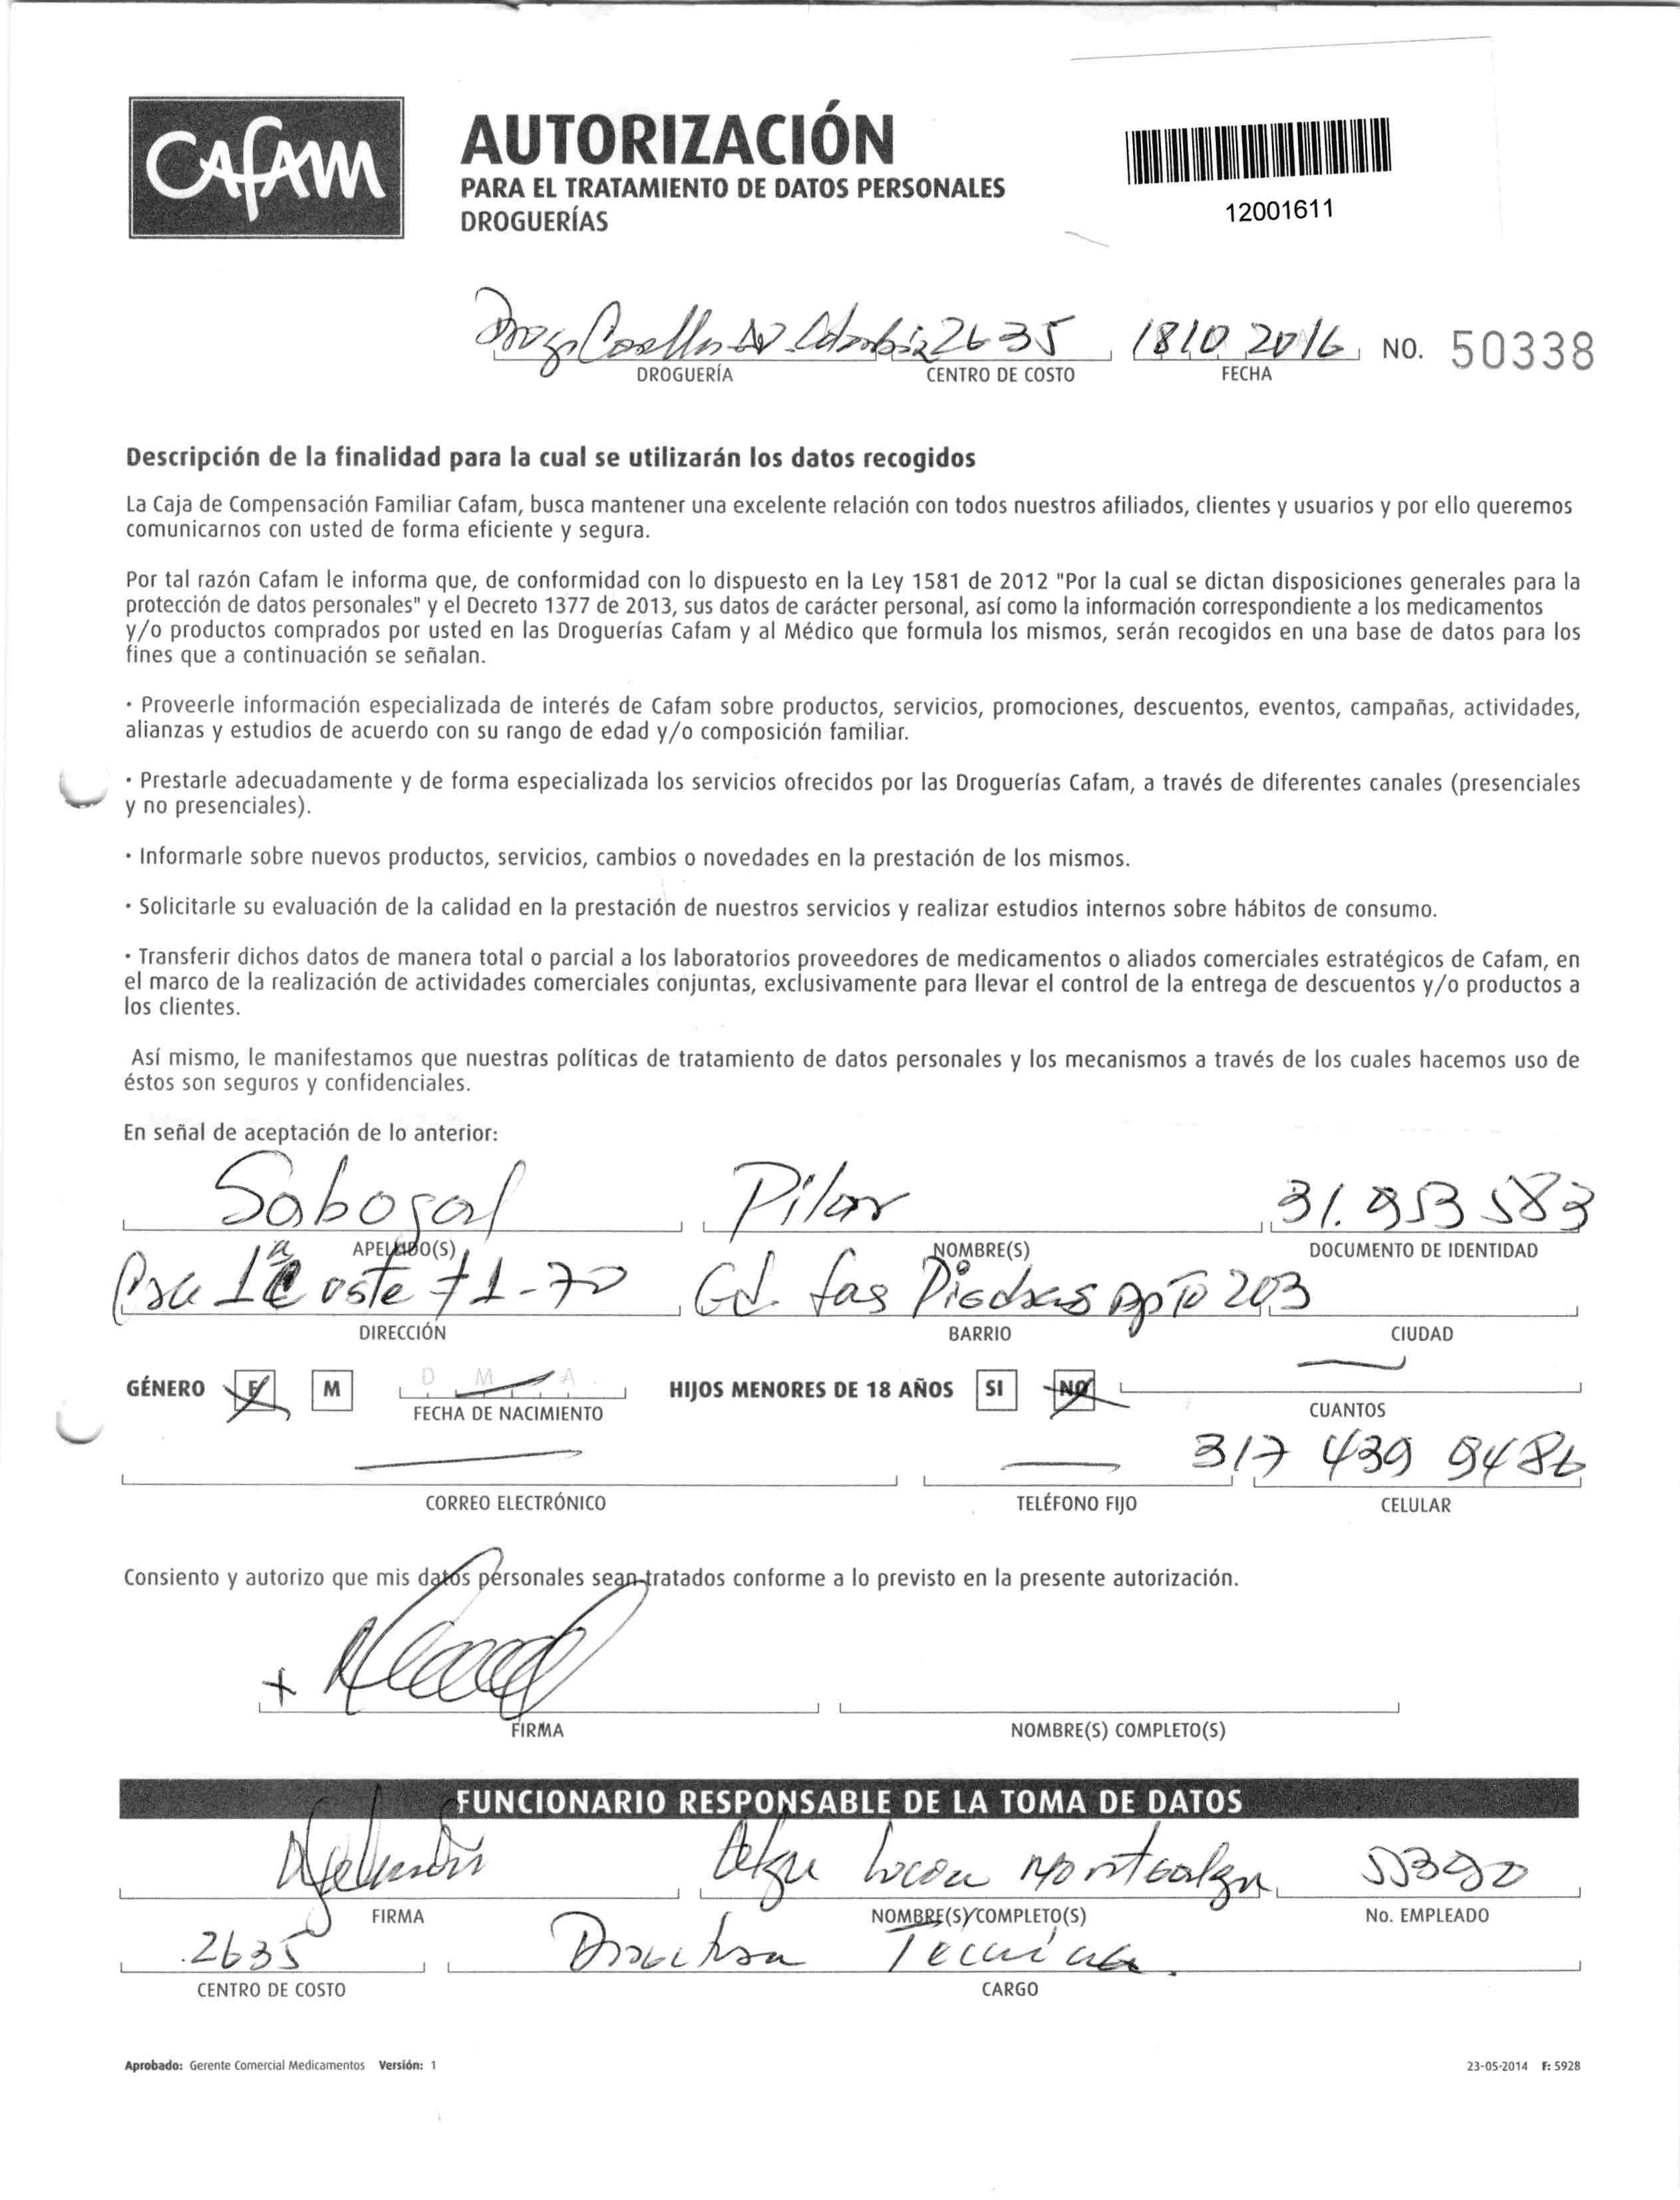 CAFAM
AUTORIZACIÓN
PARA EL TRATAMIENTO DE DATOS PERSONALES
DROGUERÍAS
12001611
2635 1810 2016 NO. 50338
DROGUERÍA CENTRO DE COSTO FECHA
Descripción de la finalidad para la cual se utilizarán los datos recogidos
La Caja de Compensación Familiar Cafam, busca mantener una excelente relación con todos nuestros afiliados, clientes y usuarios y por ello queremos
comunicarnos con usted de forma eficiente y segura.
Por tal razón Cafam le informa que, de conformidad con lo dispuesto en la Ley 1581 de 2012 "Por la cual se dictan disposiciones generales para la
protección de datos personales" y el Decreto 1377 de 2013, sus datos de carácter personal, así como la información correspondiente a los medicamentos
y/o productos comprados por usted en las Droguerías Cafam y al Médico que formula los mismos, serán recogidos en una base de datos para los
fines que a continuación se señalan.
· Proveerle información especializada de interés de Cafam sobre productos, servicios, promociones, descuentos, eventos, campañas, actividades,
alianzas y estudios de acuerdo con su rango de edad y/o composición familiar.
· Prestarle adecuadamente y de forma especializada los servicios ofrecidos por las Droguerías Cafam, a través de diferentes canales (presenciales
y no presenciales).
· Informarle sobre nuevos productos, servicios, cambios o novedades en la prestación de los mismos.
· Solicitarle su evaluación de la calidad en la prestación de nuestros servicios y realizar estudios internos sobre hábitos de consumo.
· Transferir dichos datos de manera total o parcial a los laboratorios proveedores de medicamentos o aliados comerciales estratégicos de Cafam, en
el marco de la realización de actividades comerciales conjuntas, exclusivamente para llevar el control de la entrega de descuentos y/o productos a
los clientes.
Así mismo, le manifestamos que nuestras políticas de tratamiento de datos personales y los mecanismos a través de los cuales hacemos uso de
éstos son seguros y confidenciales.
En señal de aceptación de lo anterior:
Sabogal Pilar 31.953583
APELLIDO(S) NOMBRE(S) DOCUMENTO DE IDENTIDAD
oste 71-70 Ed. Las Piedras Apto 203
DIRECCIÓN BARRIO CIUDAD
GÉNERO F M D M A HIJOS MENORES DE 18 AÑOS SI NO
FECHA DE NACIMIENTO CUANTOS
317 439 9486
CORREO ELECTRÓNICO TELÉFONO FIJO CELULAR
Consiento y autorizo que mis datos personales sean tratados conforme a lo previsto en la presente autorización.
+
FIRMA NOMBRE(S) COMPLETO(S)
FUNCIONARIO RESPONSABLE DE LA TOMA DE DATOS
55390
FIRMA NOMBRE(S) COMPLETO(S) No. EMPLEADO
2635 Directora Tecnica
CENTRO DE COSTO CARGO
Aprobado: Gerente Comercial Medicamentos Versión: 1 23-05-2014 F: 5928